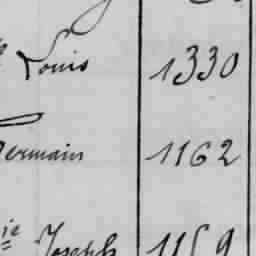 Louis 1330
Germain 1162
ie Joseph 1159